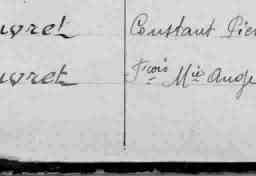 uvret Constant Pier
uvret Fçois Mie Ange